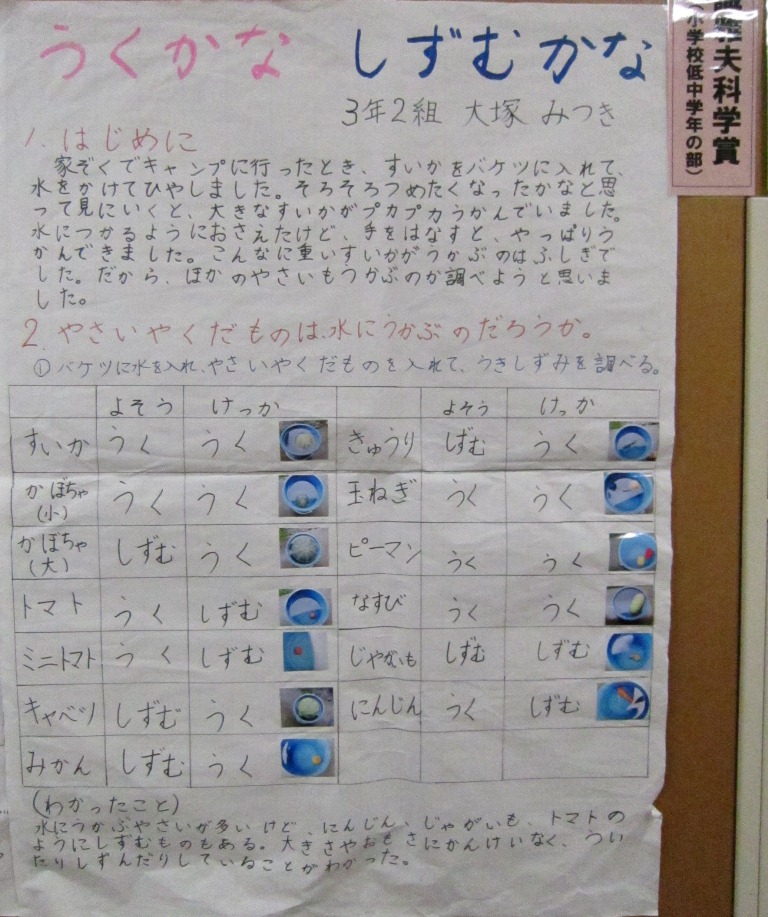 うくかな しずむかな
3年2組 大塚 みつき
1. はじめに
家ぞくでキャンプに行ったとき、すいかをバケツに入れて、
水をかけてひやしました。そろそろつめたくなったかなと思
って見にいくと、大きなすいかがプカプカうかんでいました。
水につかるようにおさえたけど、手をはなすと、やっぱりう
かんできました。こんなに重いすいかがうかぶのはふしぎで
した。だから、ほかのやさいもうかぶのか調べようと思いま
した。
2. やさいやくだものは、水にうかぶのだろうか。
① バケツに水を入れ、やさいやくだものを入れて、うきしずみを調べる。
よそう けっか よそう けっか
すいか うく うく きゅうり しずむ うく
かぼちゃ(小) うく うく 玉ねぎ うく うく
かぼちゃ(大) しずむ うく ピーマン うく うく
トマト うく しずむ なすび うく うく
ミニトマト うく しずむ じゃがいも しずむ しずむ
キャベツ しずむ うく にんじん うく しずむ
みかん しずむ うく
(わかったこと)
水にうかぶやさいが多いけど、にんじん、じゃがいも、トマトの
ようにしずむものもある。大きさやおもさにかんけいなく、うい
たりしずんだりしていることがわかった。
夫科学賞
(小学校低中学年の部)